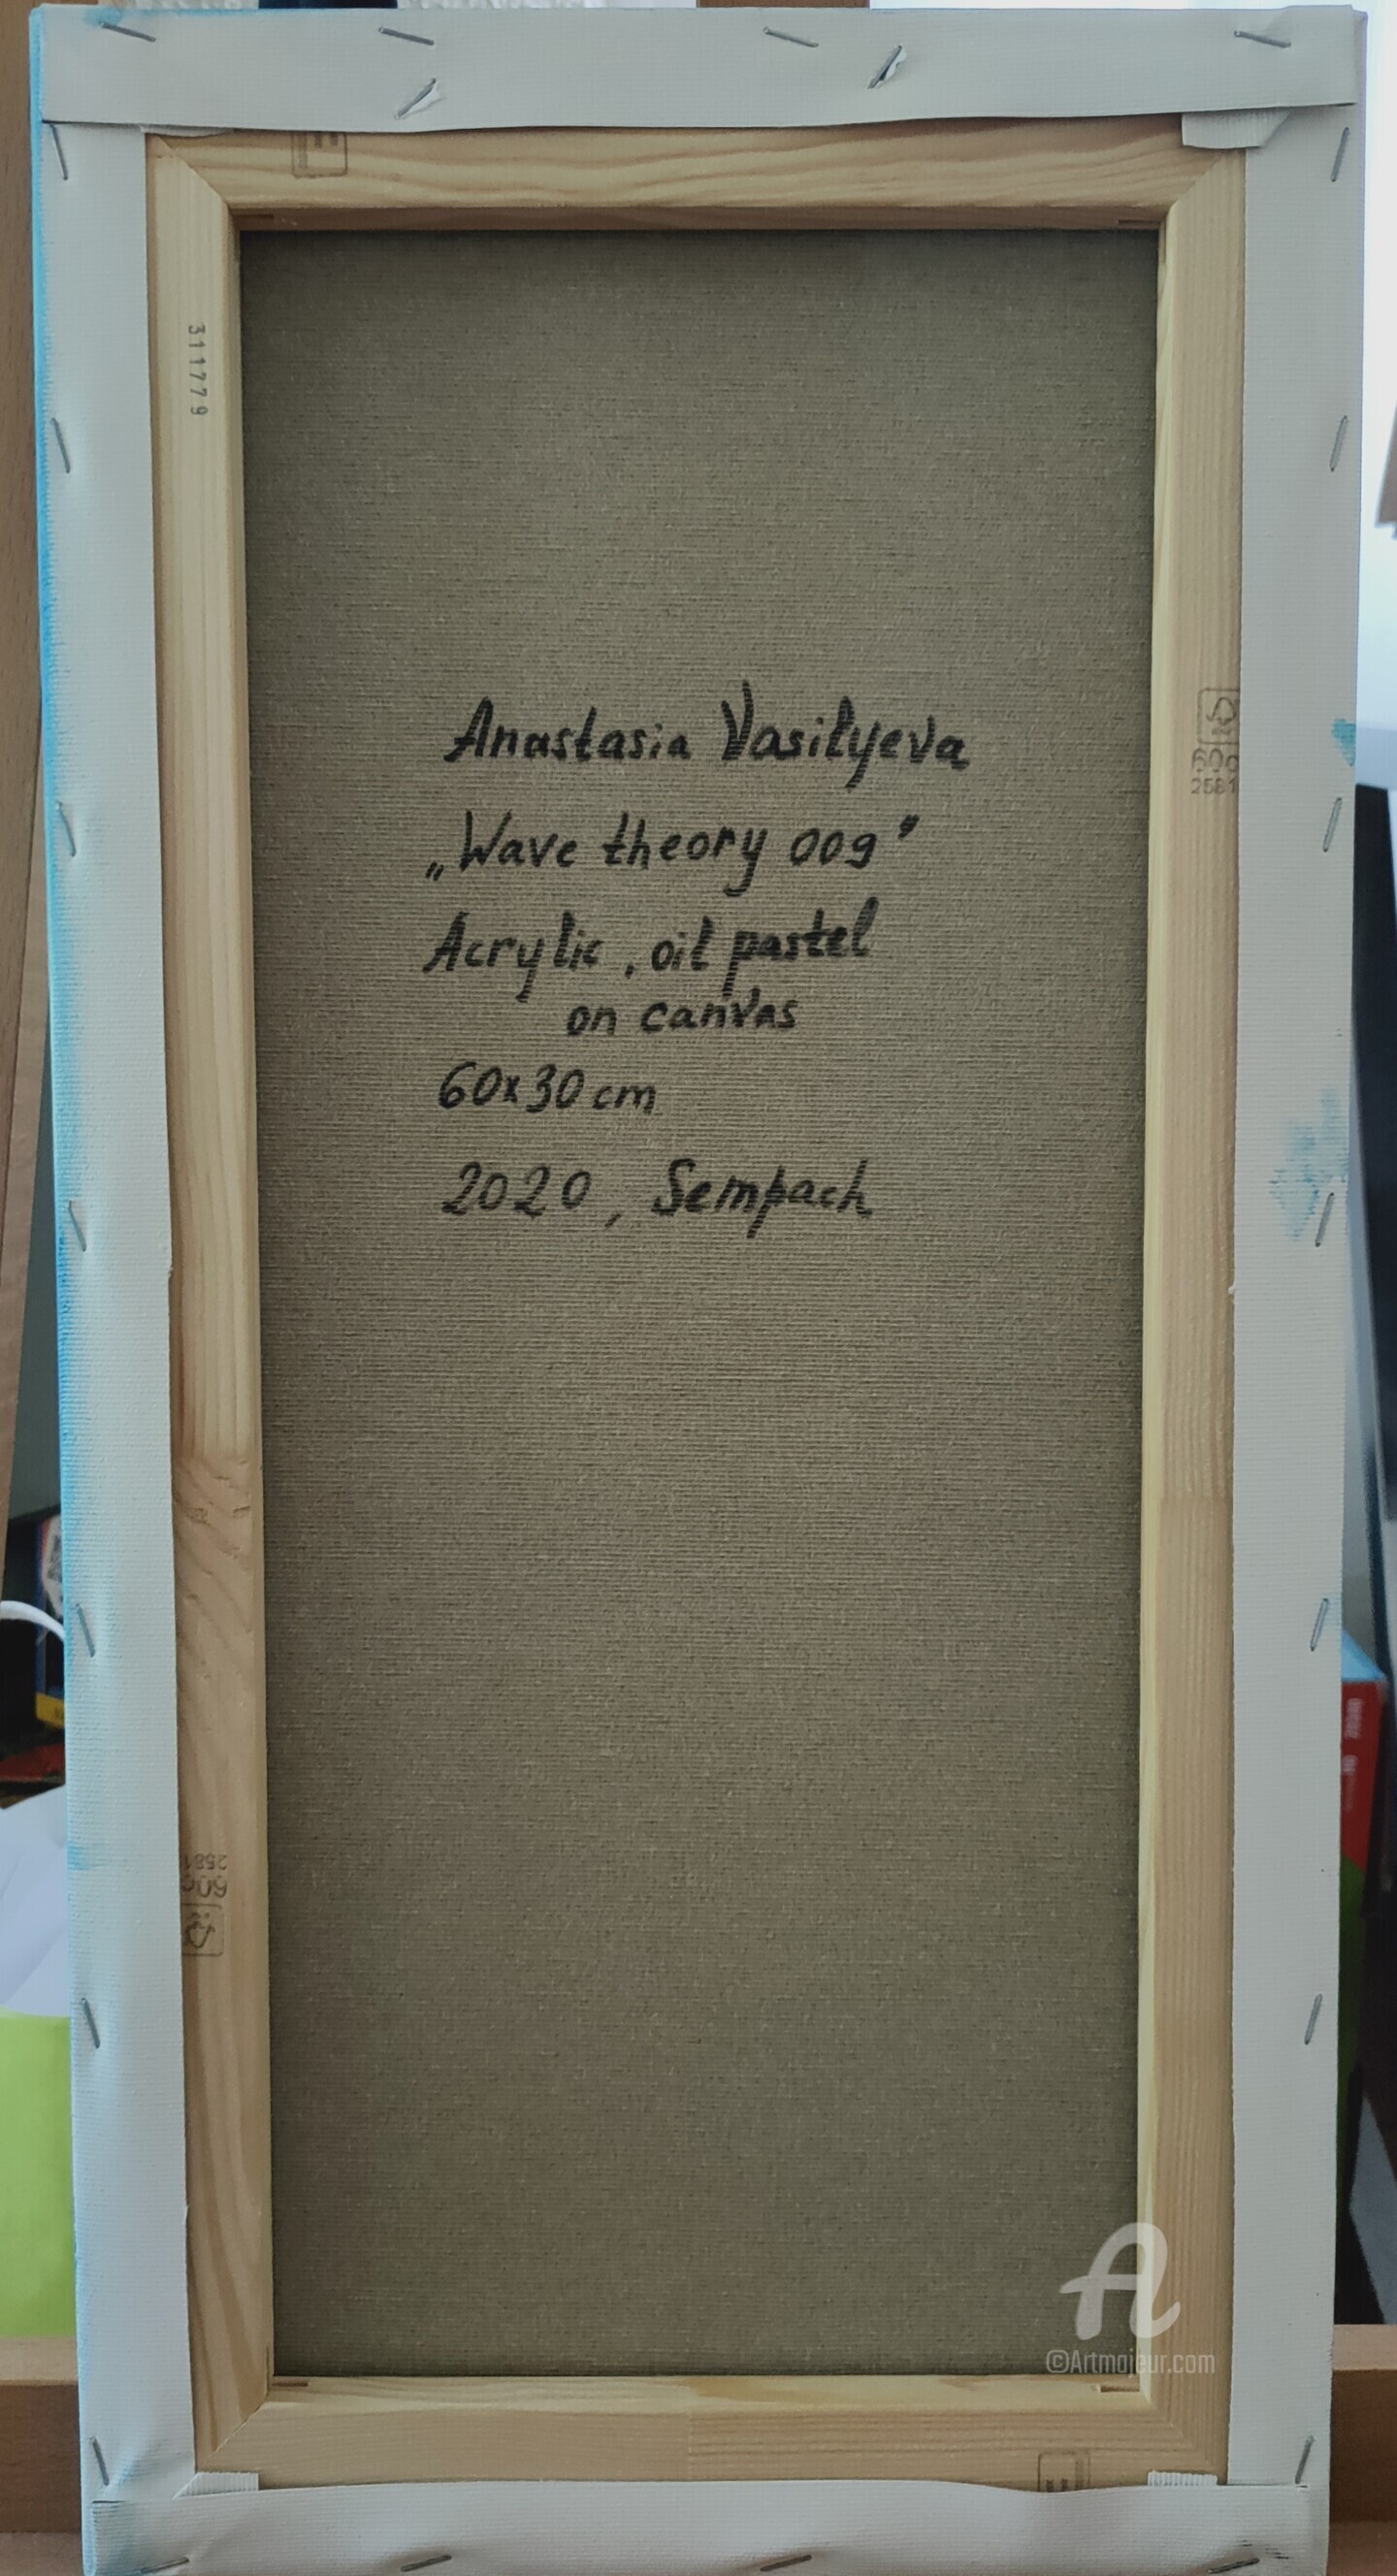 311779
Anastasia Vasilyeva
„Wave theory 009”
Acrylic, oil pastel
on canvas
60x30 cm
2020, Sempach
60c
2581
2581
60c
©Artmajeur.com